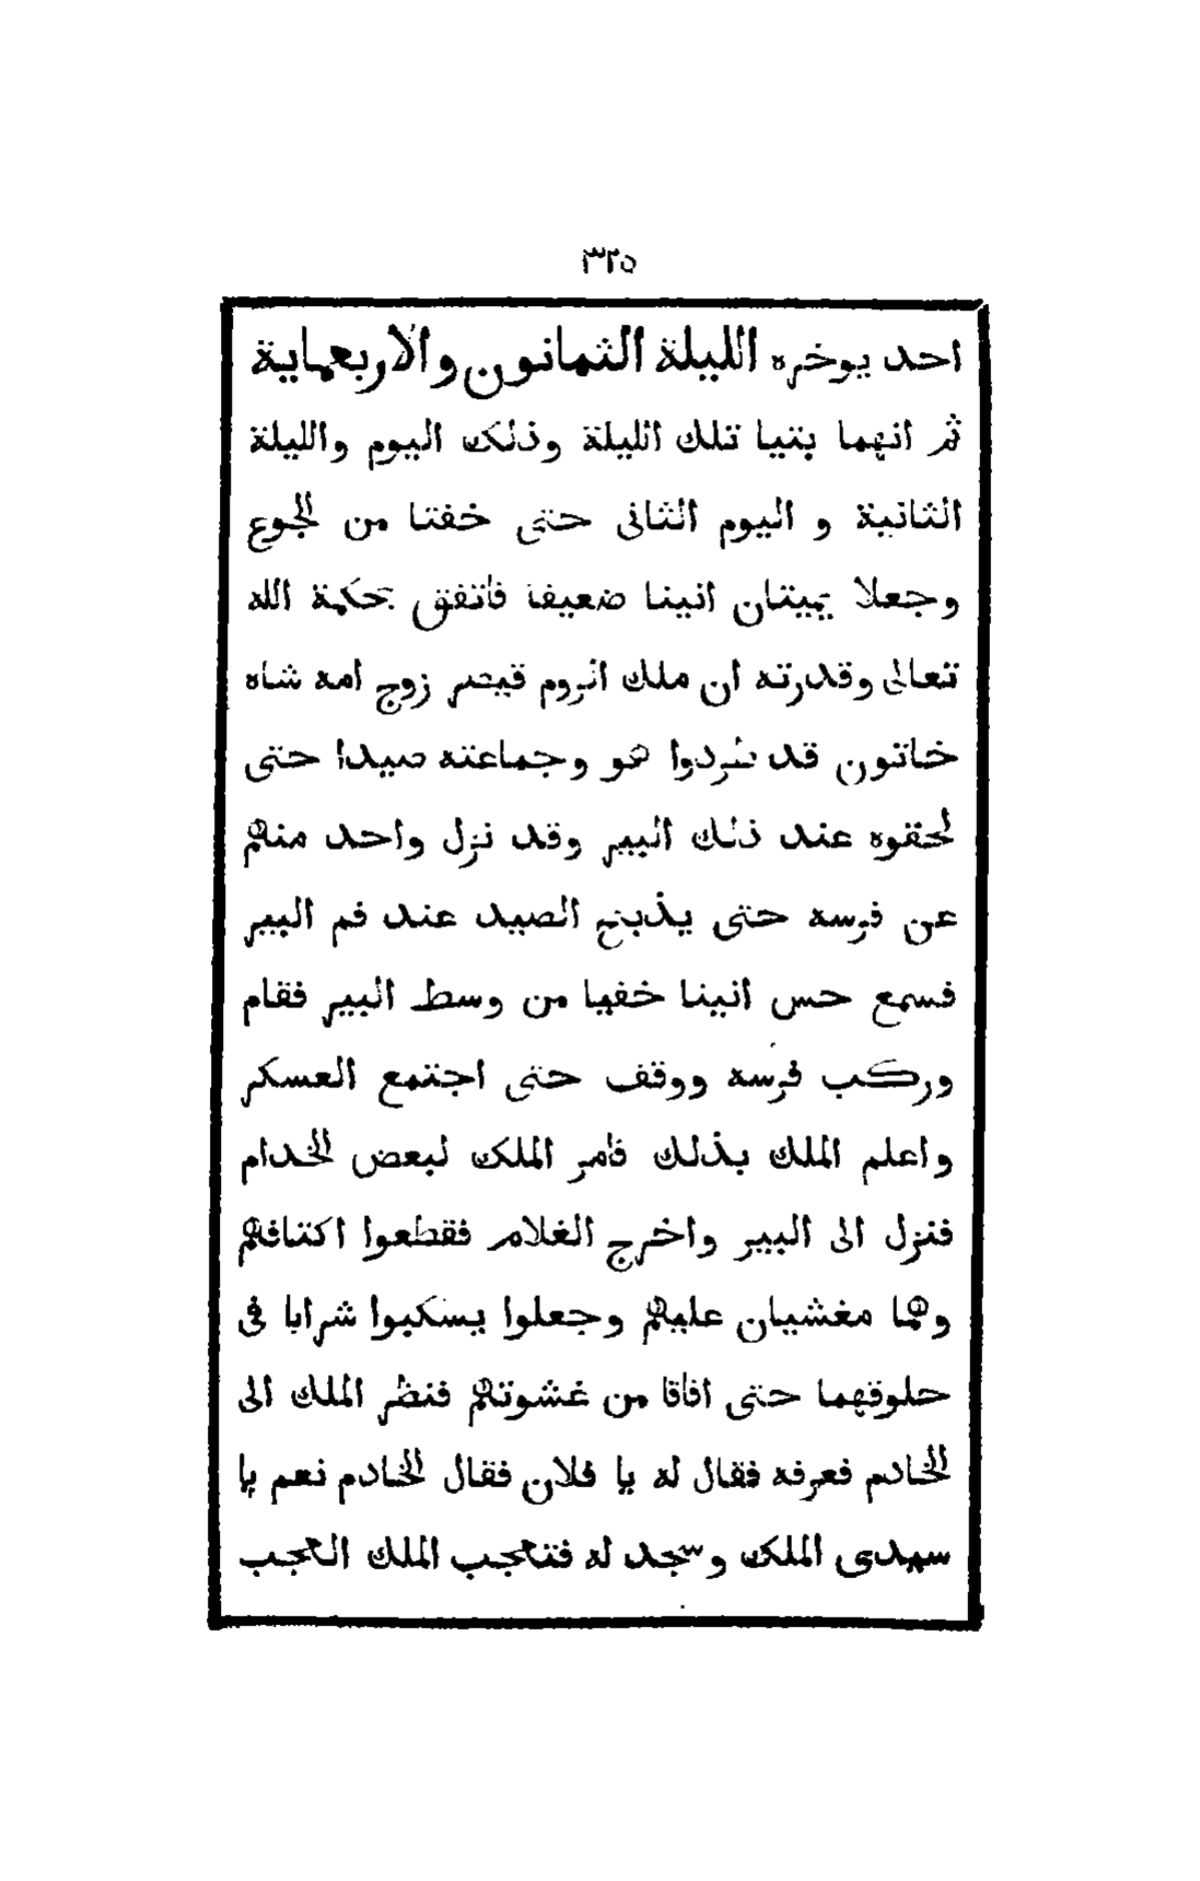 ٣٢٥
احد يوخره الليلة الثمانون والاربعماية
ثم انهما بتيا تلك الليلة وذلك اليوم والليلة
الثانية و اليوم الثانى حتى خفتا من الجوع
وجعلا يميتان انينا ضعيفا فاتفق بحكمة الله
تعالى وقدرته ان ملك الروم قيصر زوج امه شاه
خاتون قد طردوا هو وجماعته صيدا حتى
لحقوه عند ذلك البير وقد نزل واحد منهم
عن فرسه حتى يذبح الصيد عند فم البير
فسمع حس انينا خفيا من وسط البير فقام
وركب فرسه ووقف حتى اجتمع العسكر
واعلم الملك بذلك فامر الملك لبعض الخدام
فنزل الى البير واخرج الغلام فقطعوا اكتافهم
وهما مغشيان عليهم وجعلوا يسكبوا شرابا فى
حلوقهما حتى افاقا من غشوتهم فنظر الملك الى
الخادم فعرفه فقال له يا فلان فقال الخادم نعم يا
سيدى الملك وسجد له فتعجب الملك العجب